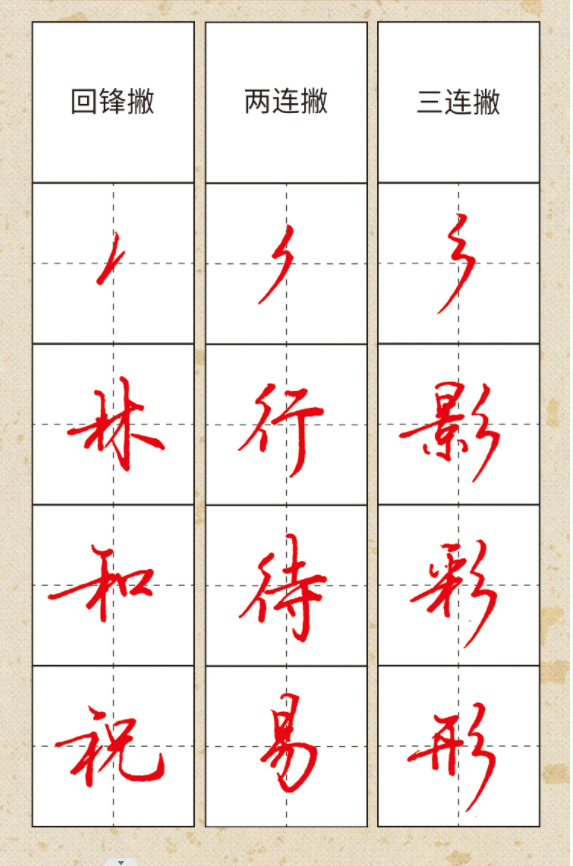 回锋撇 两连撇 三连撇
林 行 影
和 待 彩
祝 易 形